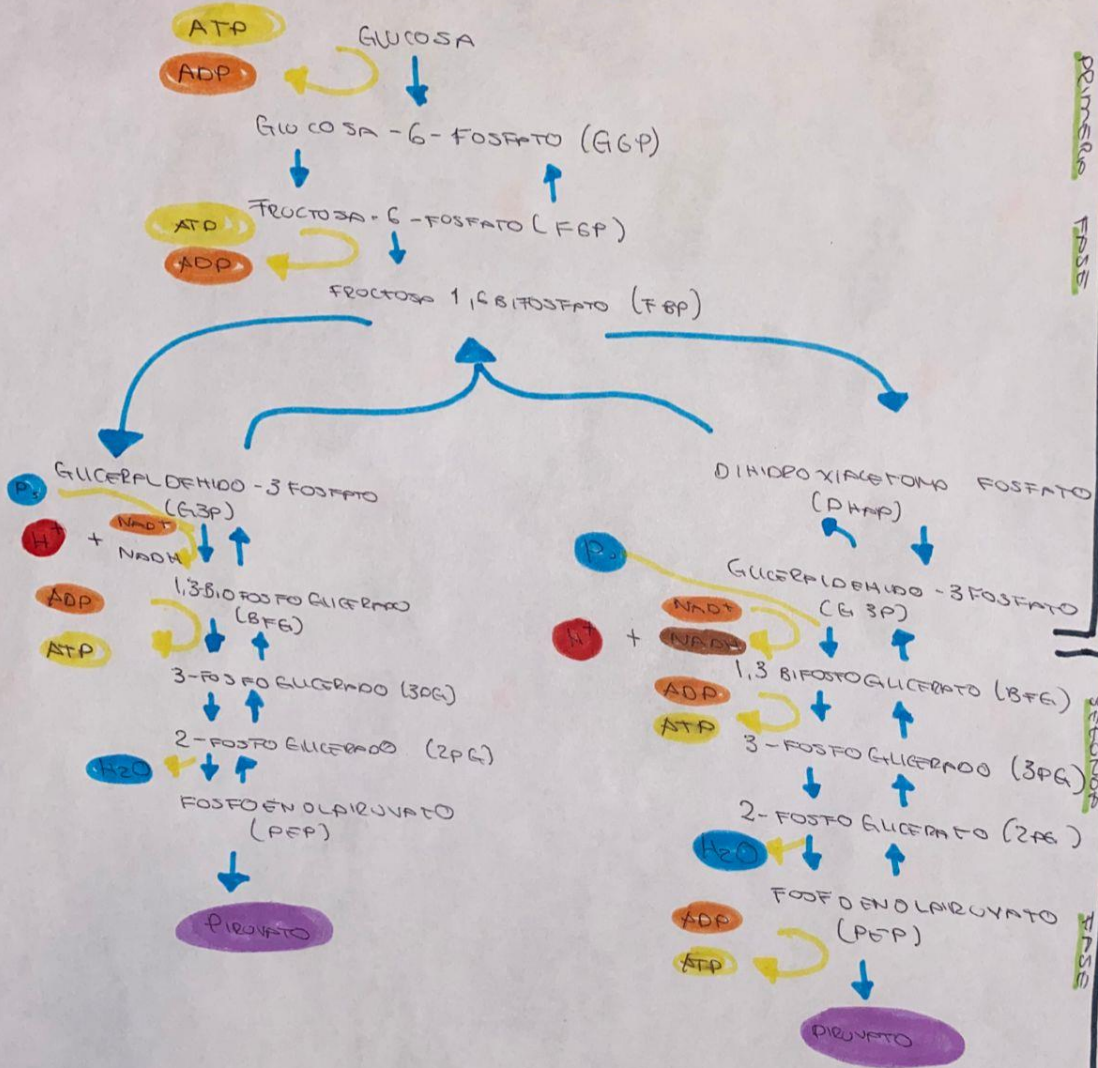 ATP
GLUCOSA
ADP
GLUCOSA-6-FOSFATO (G6P)
FRUCTOSA-6-FOSFATO (F6P)
ATP
ADP
FRUCTOSA 1,6 BIFOSFATO (FBP)
PRIMERA FASE
GLICERALDEHIDO-3 FOSFATO
(G3P)
NAD+
H+ + NADH
ADP
1,3-BIOFOSFOGLICERADO
(BFG)
ATP
3-FOSFOGLICERADO (3PG)
2-FOSFOGLICERADO (2PG)
H2O
FOSFOENOLPIRUVATO
(PEP)
PIRUVATO
DIHIDROXIACETONA FOSFATO
(DHAP)
GLICERALDEHIDO-3 FOSFATO
(G3P)
NAD+
H+ + NADH
1,3 BIFOSFOGLICERATO (BFG)
ADP
ATP
3-FOSFOGLICERADO (3PG)
2-FOSFOGLICERATO (2PG)
H2O
FOSFOENOLPIRUVATO
(PEP)
ADP
ATP
PIRUVATO
SEGUNDA FASE